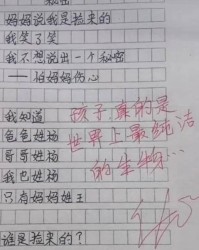 秘密
妈妈说我是捡来的
我笑了笑
我不想说出一个秘密
——怕妈妈伤心
我知道
爸爸姓杨
哥哥姓杨
我也姓杨
只有妈妈姓王
谁是捡来的？
孩子，真的是
世界上最纯洁
的生物…